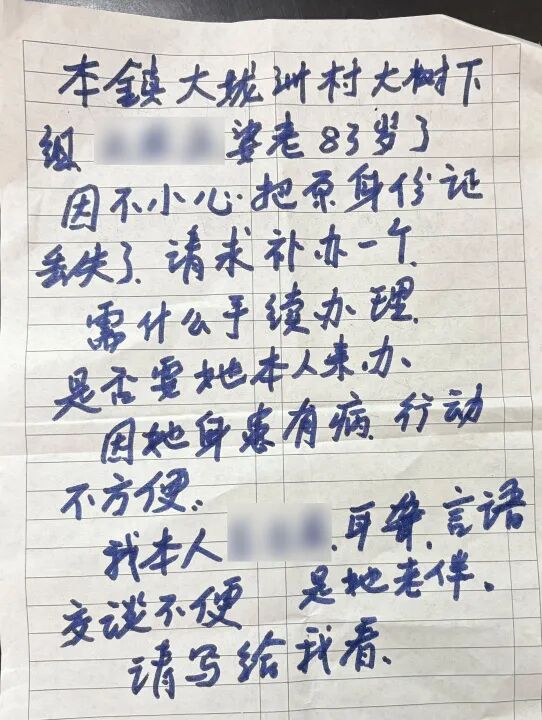 本镇大垅洲村大树下
组 婆老83岁了
因不小心把原身份证
丢失了.请求补办一个.
需什么手续办理.
是否要她本人来办.
因她身患有病.行动
不方便.
我本人 .耳聋.言语
交谈不便 是她老伴.
请写给我看.